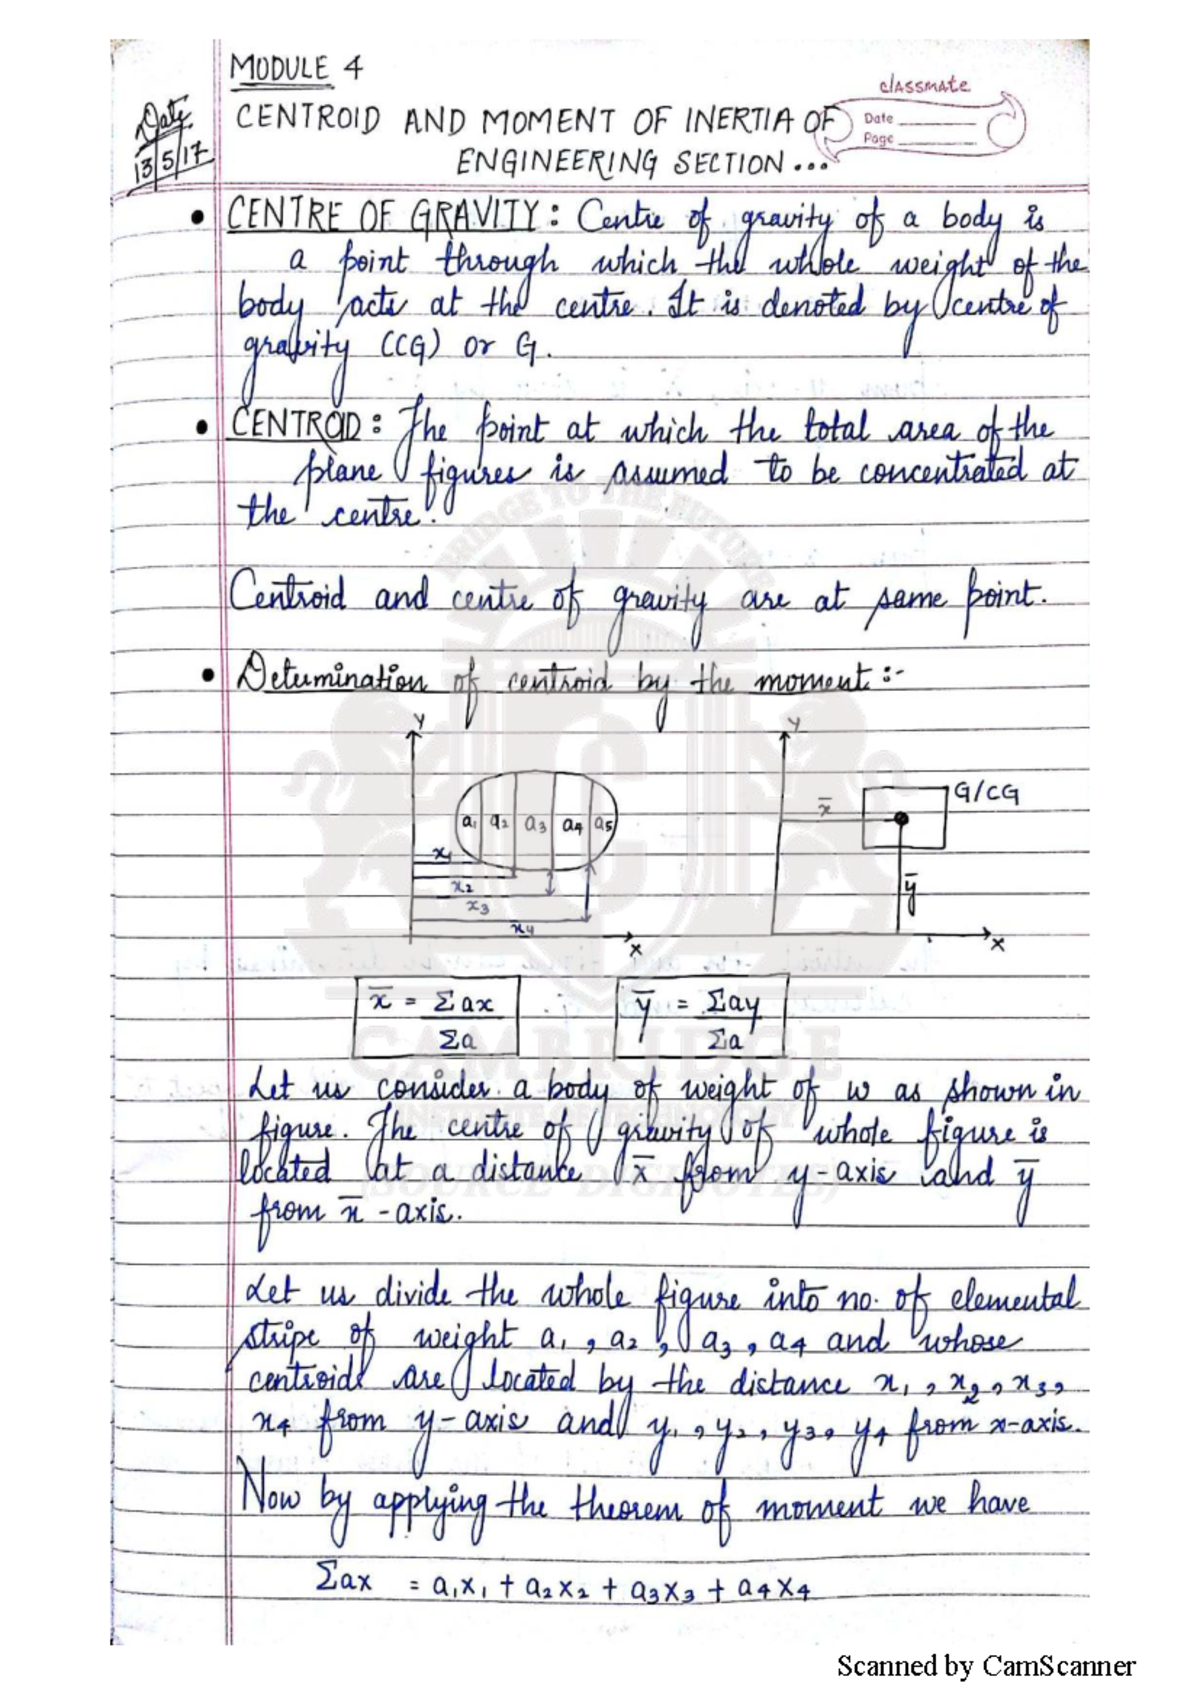 MODULE 4
classmate
Date
Page
Date
13/5/17
CENTROID AND MOMENT OF INERTIA OF
ENGINEERING SECTION...
• CENTRE OF GRAVITY: Centre of gravity of a body is
a point through which the whole weight of the
body acts at the centre. It is denoted by centre of
gravity (CG) or G.
• CENTROID: The point at which the total area of the
plane figures is assumed to be concentrated at
the centre.
BRIDGE TO THE FUTURE
Centroid and centre of gravity are at same point.
• Determination of centroid by the moment:-
Y
a1 a2 a3 a4 a5
x1
x2
x3
x4
X
Y
G/CG
x̄
ȳ
X
x̄ = Σax / Σa
ȳ = Σay / Σa
CAMBRIDGE
INSTITUTE OF TECHNOLOGY
(SOURCE DIGINOTES)
Let us consider a body of weight of w as shown in
figure. The centre of gravity of whole figure is
located at a distance x̄ from y-axis and ȳ
from x̄-axis.
Let us divide the whole figure into no. of elemental
stripe of weight a1, a2, a3, a4 and whose
centroids are located by the distance x1, x2, x3,
x4 from y-axis and y1, y2, y3, y4 from x-axis.
Now by applying the theorem of moment we have
Σax = a1x1 + a2x2 + a3x3 + a4x4
Scanned by CamScanner